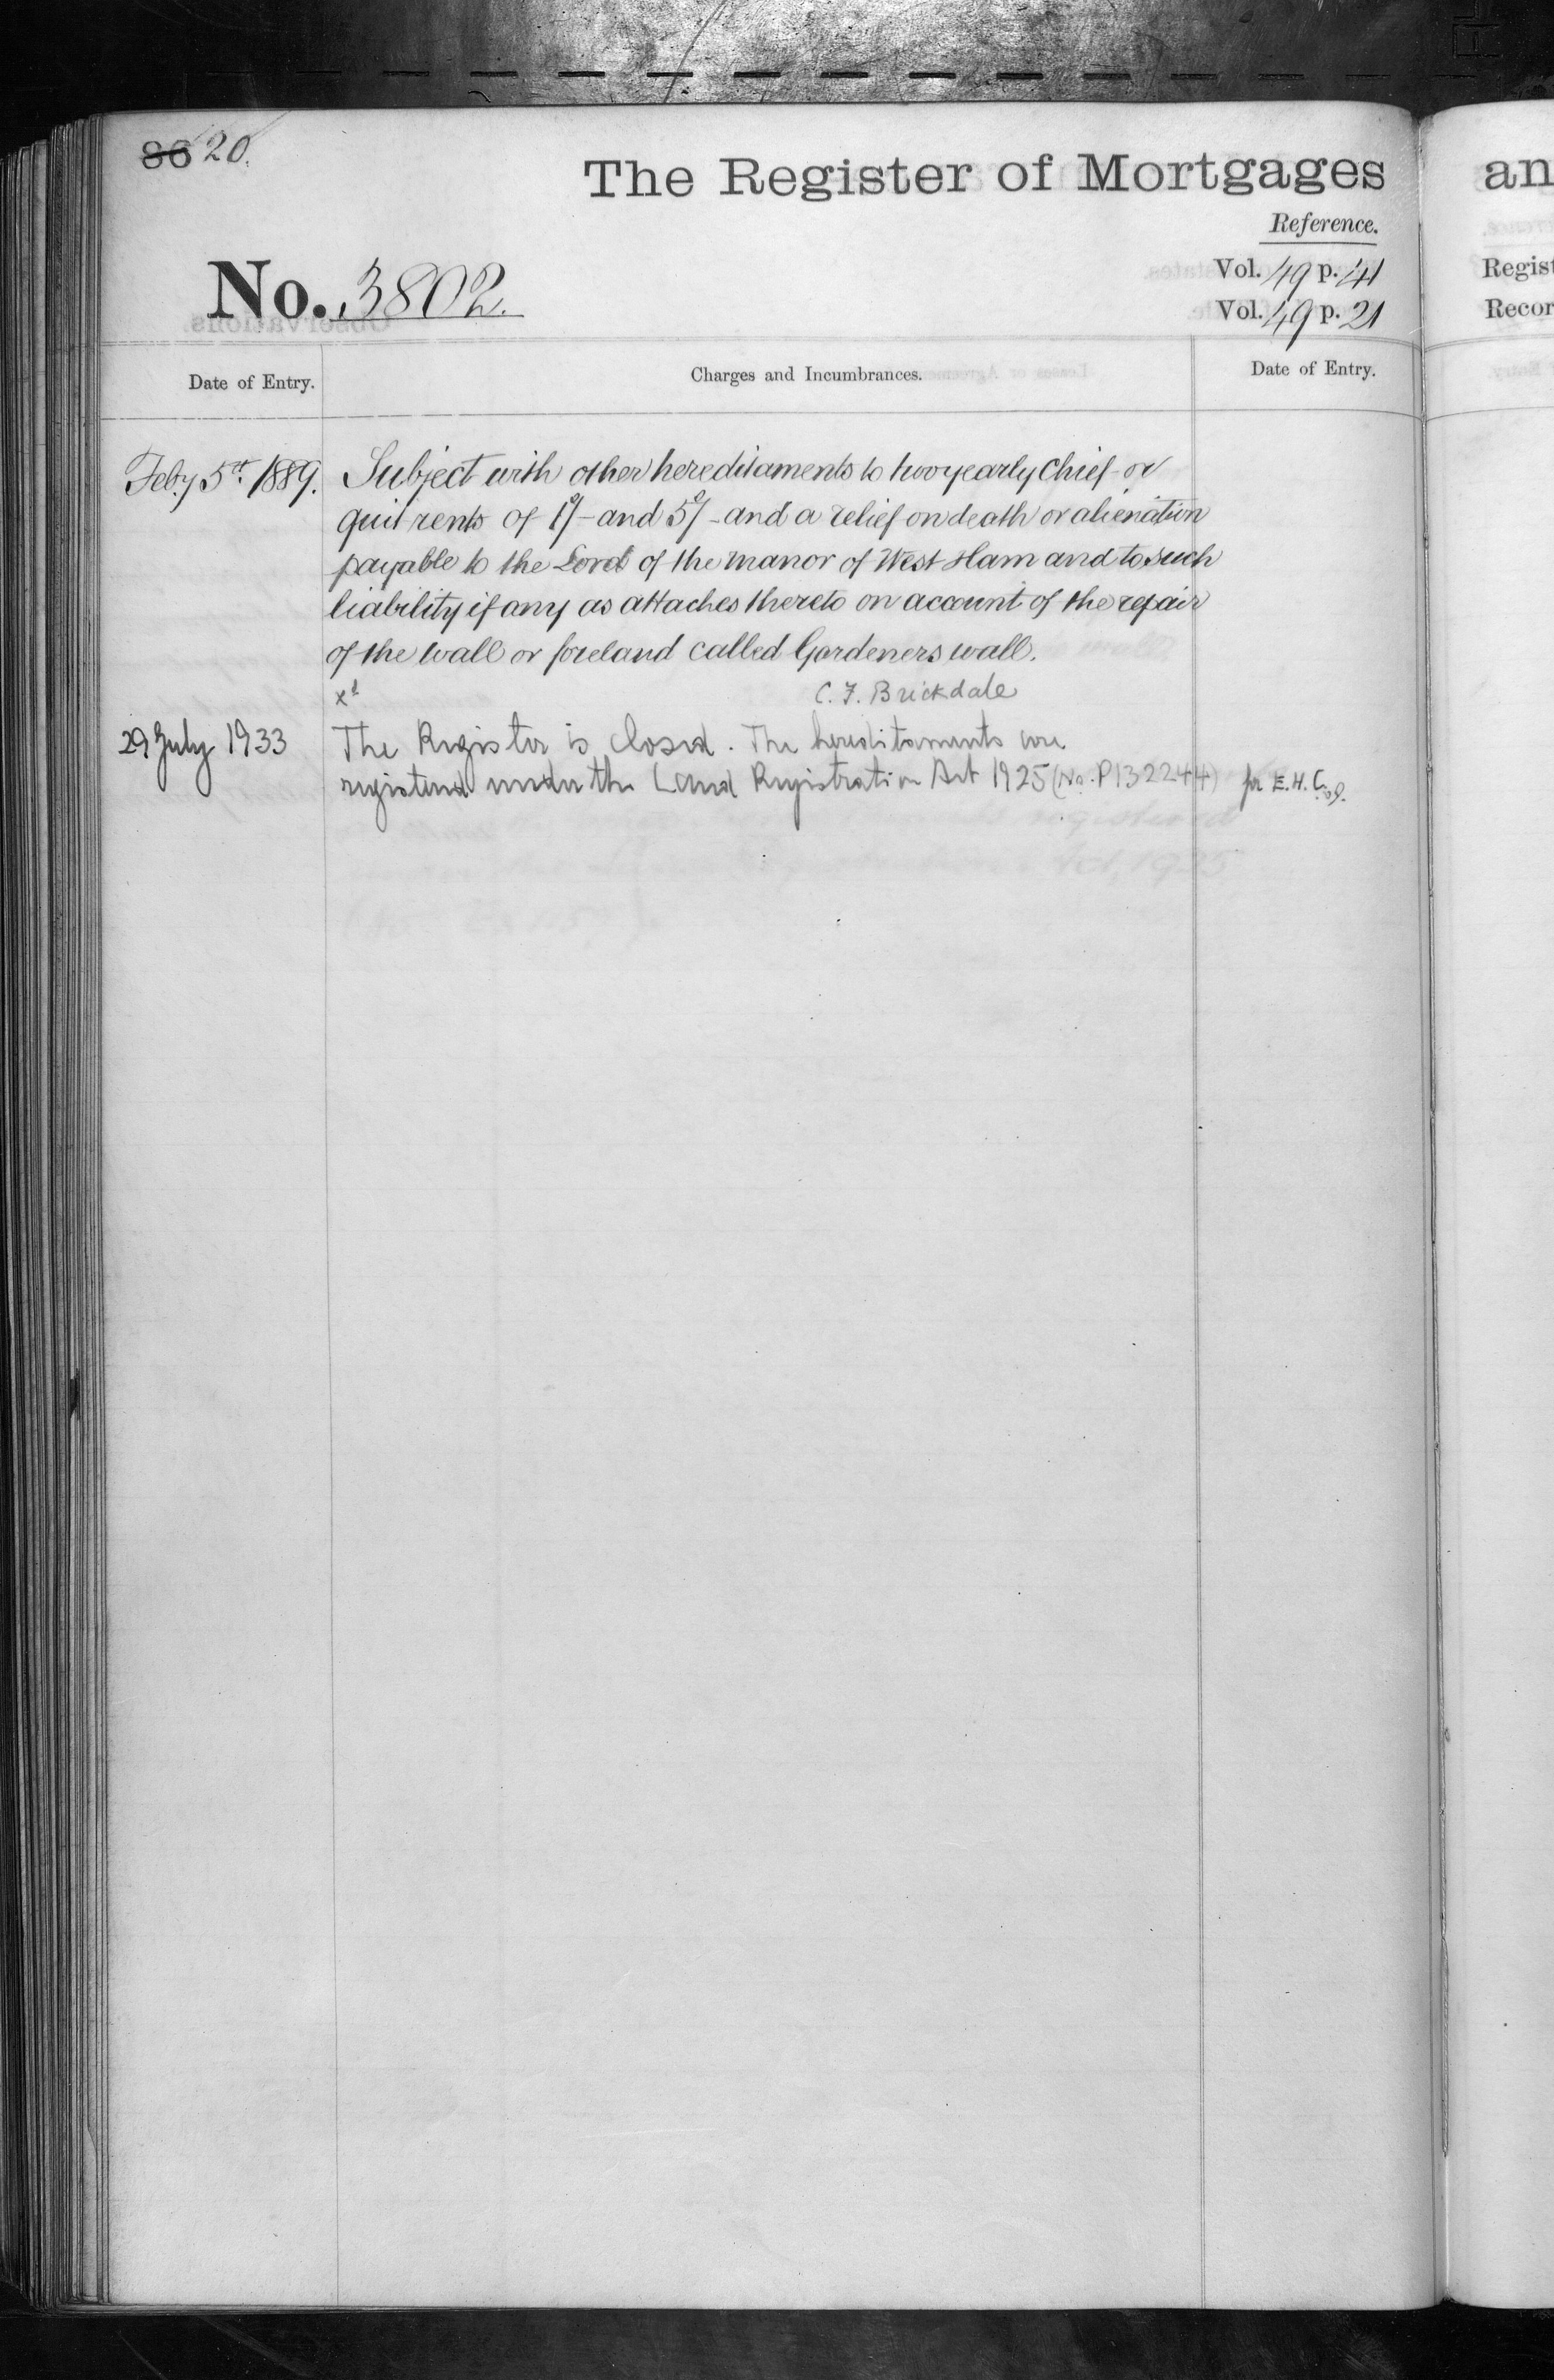 86 20.
The Register of Mortgages
an
Reference.
No. 3802.
Vol. 49 p. 41
Regist
Vol. 49 p. 21
Recor
Date of Entry.
Charges and Incumbrances.
Date of Entry.
Feby 5th 1889. Subject with other hereditaments to two yearly Chief or
quit rents of 1/- and 5/- and a relief on death or alienation
payable to the Lord of the manor of West Ham and to such
liability if any as attaches thereto on account of the repair
of the wall or foreland called Gardeners wall.
xd C. F. Brickdale
29 July 1933 The Register is closed. The hereditaments are
registered under the Land Registration Act 1925 (No. P132244) for E.H.C.